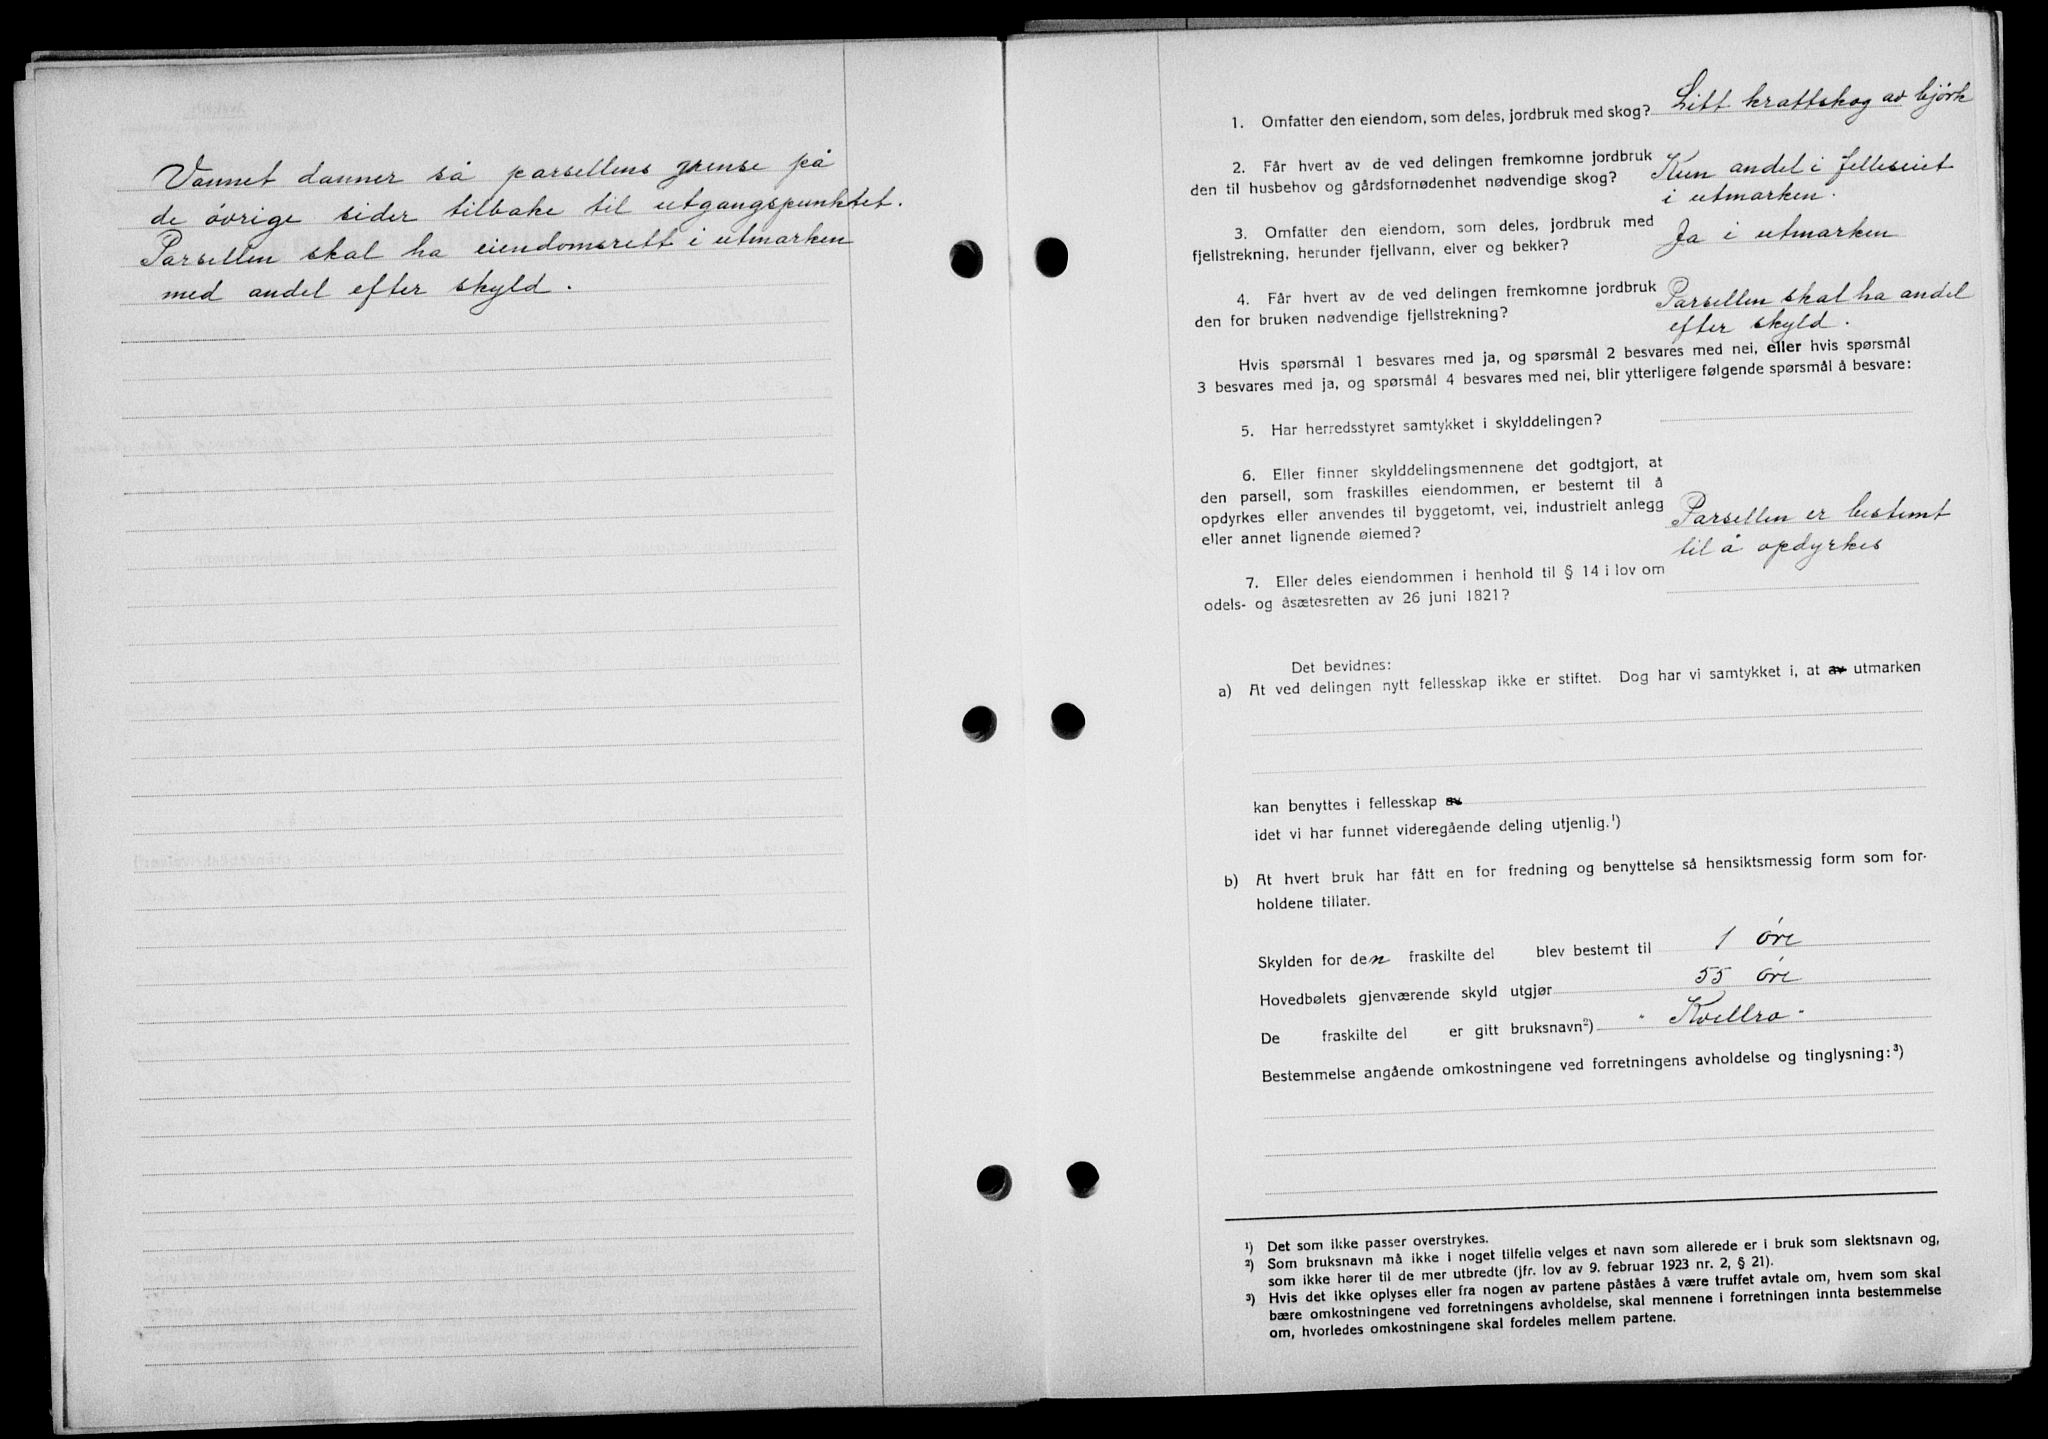 Vannet danner så parsellens grense på
de øvrige sider tilbake til utgangspunktet.
Parsellen skal ha eiendomsrett i utmarken
med andel efter skyld.
1. Omfatter den eiendom, som deles, jordbruk med skog? Litt krattskog av bjørk
2. Får hvert av de ved delingen fremkomne jordbruk
den til husbehov og gårdsfornødenhet nødvendige skog? Kun andel i felleseiet
i utmarken.
3. Omfatter den eiendom, som deles, jordbruk med
fjellstrekning, herunder fjellvann, elver og bekker? Ja i utmarken
4. Får hvert av de ved delingen fremkomne jordbruk
den for bruken nødvendige fjellstrekning? Parsellen skal ha andel
efter skyld.
Hvis spørsmål 1 besvares med ja, og spørsmål 2 besvares med nei, eller hvis spørsmål
3 besvares med ja, og spørsmål 4 besvares med nei, blir ytterligere følgende spørsmål å besvare:
5. Har herredsstyret samtykket i skylddelingen?
6. Eller finner skylddelingsmennene det godtgjort, at
den parsell, som fraskilles eiendommen, er bestemt til å
opdyrkes eller anvendes til byggetomt, vei, industrielt anlegg
eller annet lignende øiemed? Parsellen er bestemt
til å opdyrkes
7. Eller deles eiendommen i henhold til § 14 i lov om
odels- og åsætesretten av 26 juni 1821?
Det bevidnes:
a) At ved delingen nytt fellesskap ikke er stiftet. Dog har vi samtykket i, at av utmarken
kan benyttes i fellesskap av
idet vi har funnet videregående deling utjenlig.¹)
b) At hvert bruk har fått en for fredning og benyttelse så hensiktsmessig form som for-
holdene tillater.
Skylden for den fraskilte del blev bestemt til 1 øre
Hovedbølets gjenværende skyld utgjør 55 øre
De fraskilte del er gitt bruksnavn²) " Kvellro "
Bestemmelse angående omkostningene ved forretningens avholdelse og tinglysning:³)
¹) Det som ikke passer overstrykes.
²) Som bruksnavn må ikke i noget tilfelle velges et navn som allerede er i bruk som slektsnavn og,
som ikke hører til de mer utbredte (jfr. lov av 9. februar 1923 nr. 2, § 21).
³) Hvis det ikke oplyses eller fra nogen av partene påståes å være truffet avtale om, hvem som skal
bære omkostningene ved forretningens avholdelse, skal mennene i forretningen innta bestemmelse
om, hvorledes omkostningene skal fordeles mellem partene.